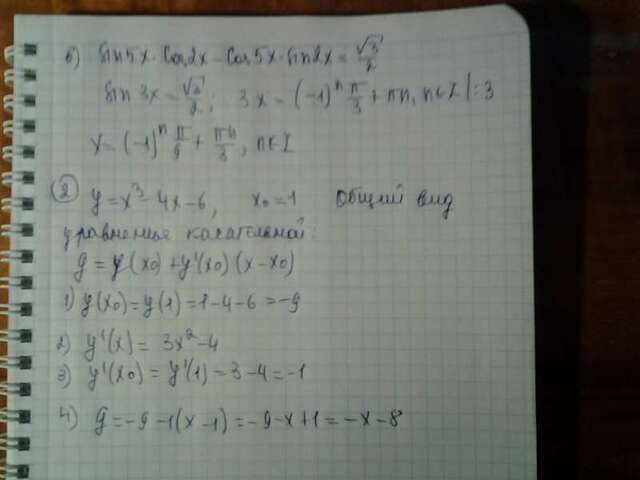 б) sin5x·Cos2x − Cos5x·sin2x = √3/2
sin3x = √3/2; 3x = (−1)ⁿ π/3 + πn, n∈Z |:3
x = (−1)ⁿ π/9 + πn/3, n∈Z
② y = x³ − 4x − 6, x₀ = 1 Общий вид
уравненье касательной:
y = y(x₀) + y'(x₀)(x − x₀)
1) y(x₀) = y(1) = 1 − 4 − 6 = −9
2) y'(x) = 3x² − 4
3) y'(x₀) = y'(1) = 3 − 4 = −1
4) y = −9 − 1(x − 1) = −9 − x + 1 = −x − 8